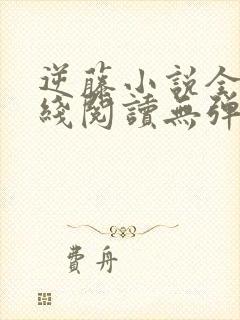 逆藤小说全
綫閱讀無彈
費舟